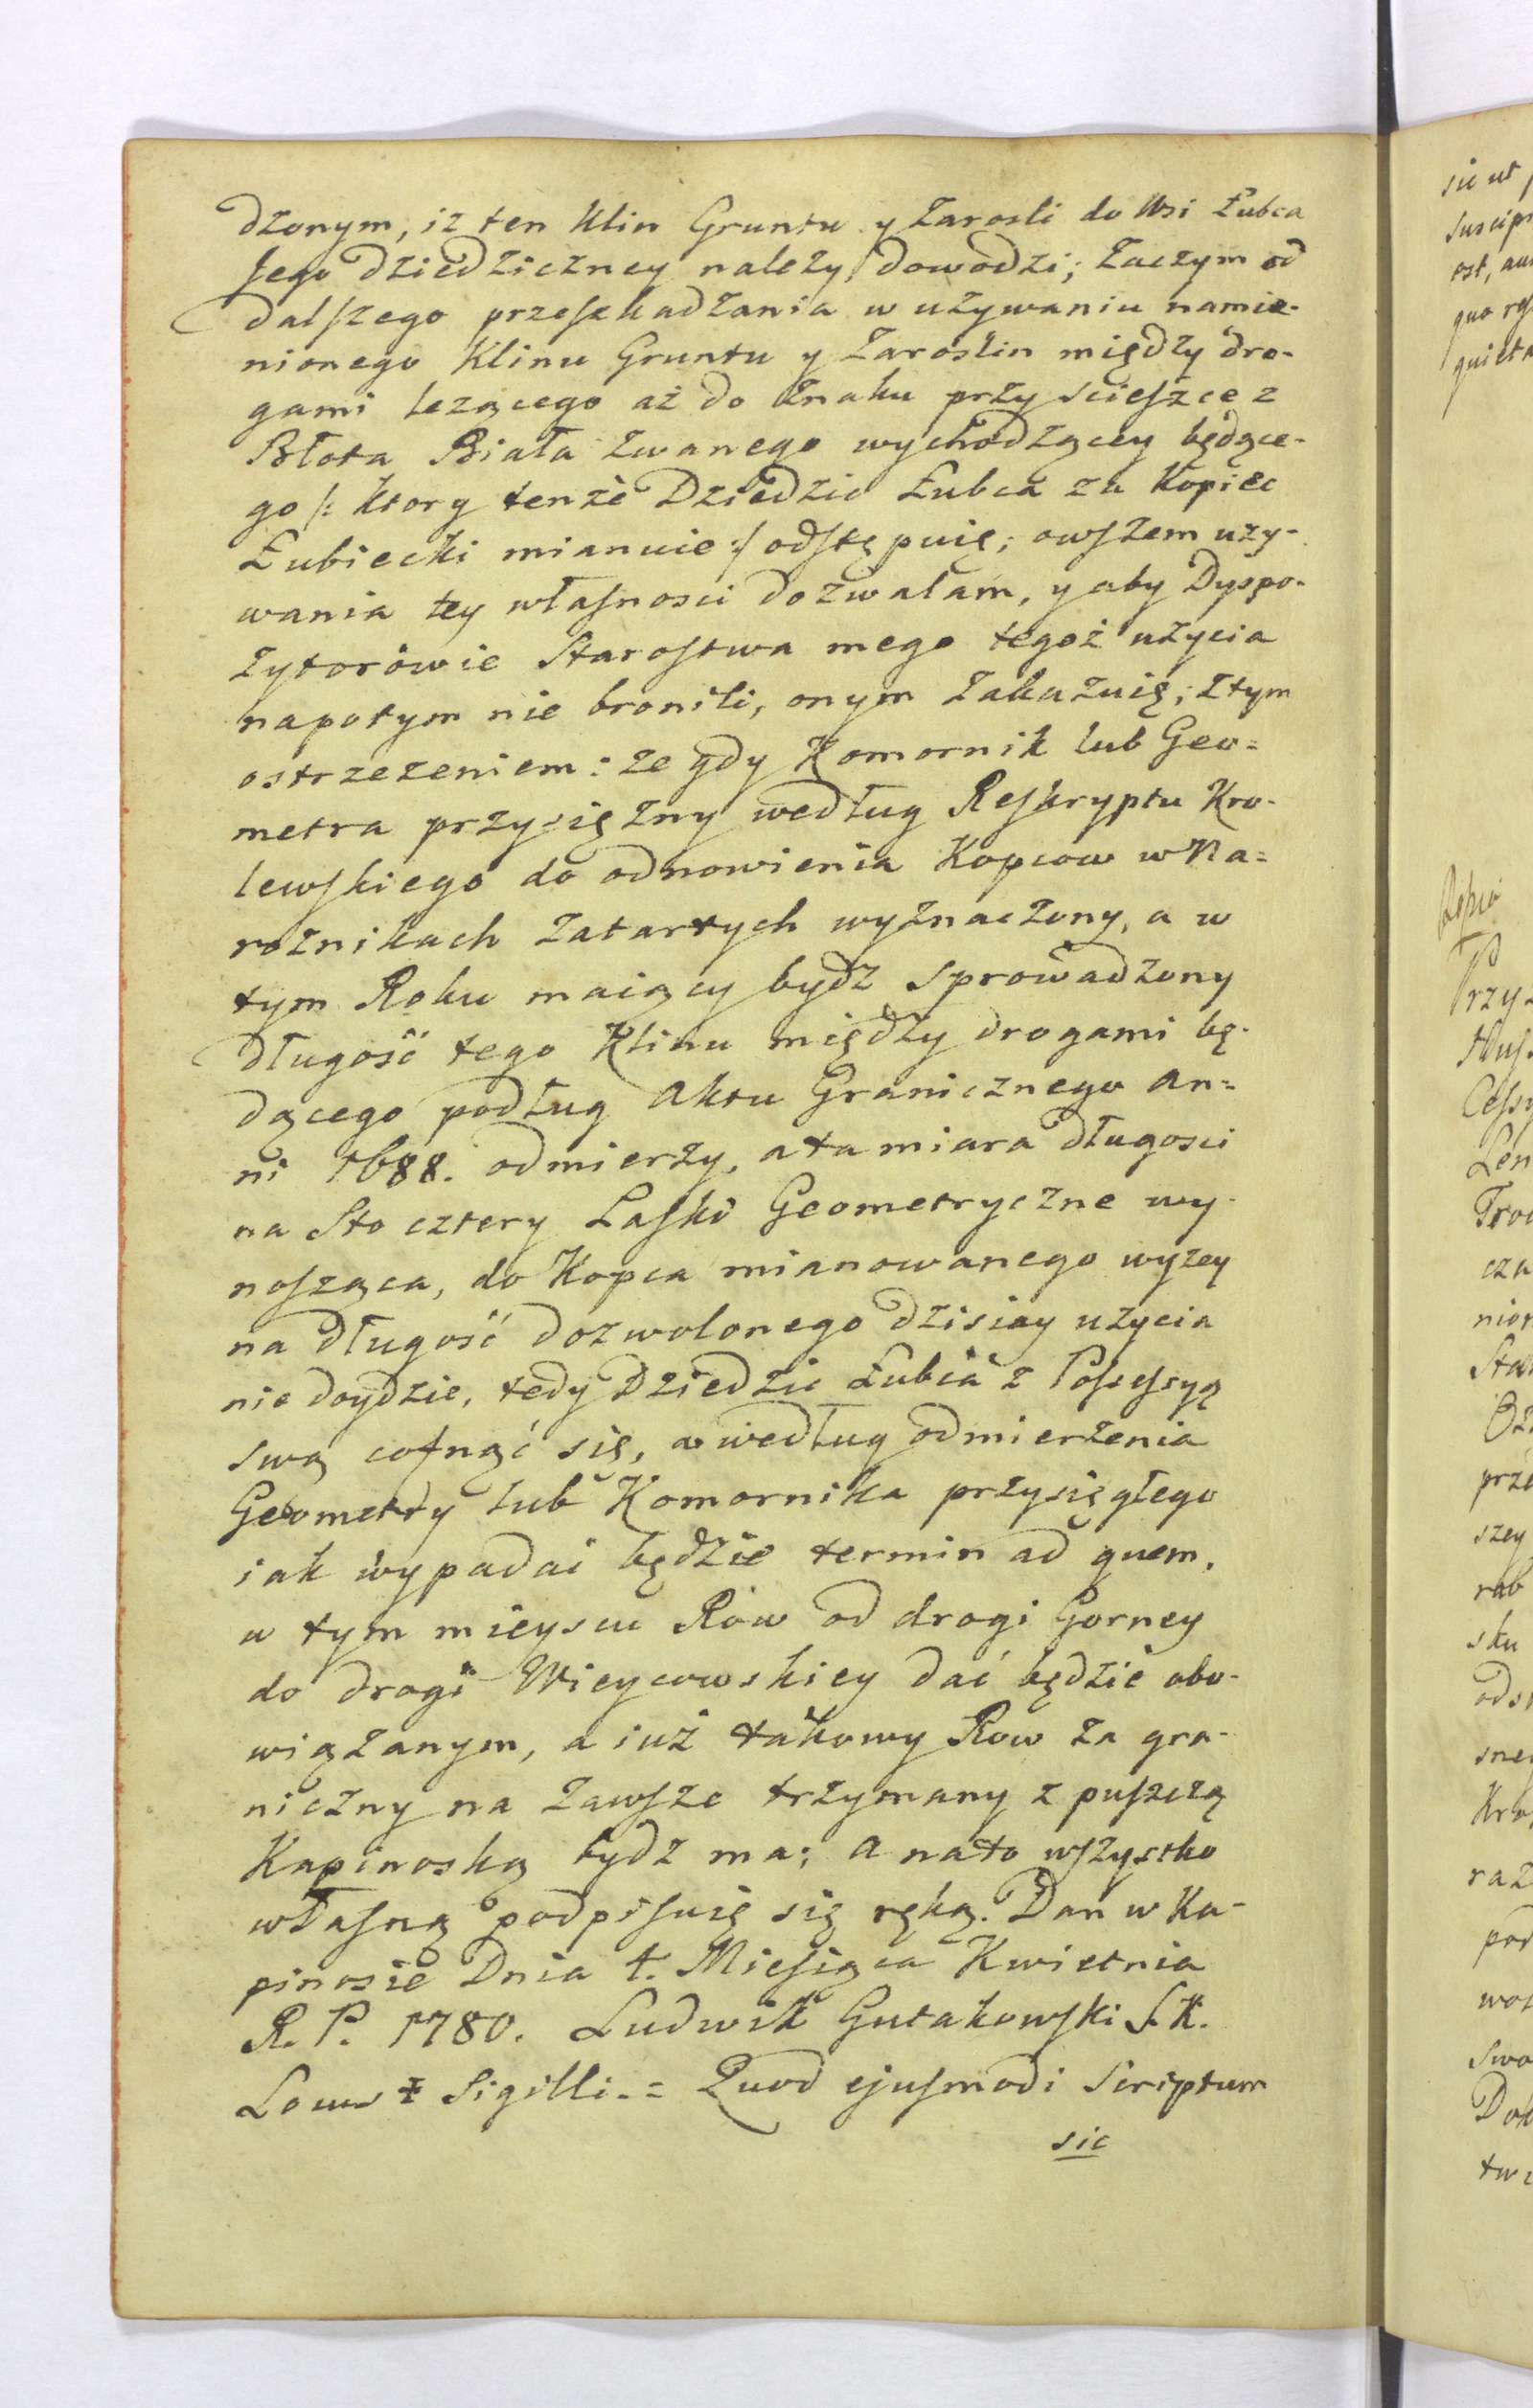 dzonym, iz ten Klin Gruntu y Zarosli do Wsi Łubca
Jego Dziedziczney nalezy, dowodzi; Zaczym od
dalſzego przeſzkadzania w używaniu namie-
nionego Klinu Gruntu y Zaroślin między dro-
gami lezącego aż do Znaku przy scieſzce z
Błota Biała Zwanego wychodzącey będące-
go /: ktory tenże Dziedzic Łubca za Kopiec
Łubiecki mianuie :/ odſtępuię; owſzem uzy-
wania tey właſnosci dozwalam, y aby Dyspo-
zytorówie Staroſtwa mego tegoż użycia
napotym nie bronili, onym Zakazuię; Ztym
ostrzezeniem: ze gdy Komornik lub Geo=
metra przysiężny według Reſkryptu Kro-
lewſkiego do odnowienia Kopcow w Na=
roznikach Zatartych wyznaczony, a w
tym Roku maiący bydz Sprowadzony
długość tego Klinu między drogami bę-
dącego podług Aktu Granicznego An=
ni 1688. odmierzy, a ta miara długosci
na Sto cztery Laſki Geometryczne wy-
noſząca, do Kopca mianowanego wyzey
na długość dozwolonego dzisiay uzycia
nie doydzie, tedy Dziedzic Łubca z Poſseſsyą
swą cofnąć się, a według odmierzenia
Geometry lub Komornika przysięgłego
iak wypadai będzie termin ad quem,
w tym mieyscu Rów od drogi Gorney
do drogi Wieycowskiey dać będzie obo-
wiązanym, a iuż takowy Row za gra-
niczny na Zawſze trzymany z puſzczą
Kapinoską bydz ma; a nato wſzystko
właſną podpiſuię się ręką. Dan w Ka-
pinosie Dnia 1. Mieſiąca Kwietnia
R. P. 1780. Ludwik Gutakowſki S.K.
Locus ‡ Sigilli. = Quod ejuſmodi Scriptum
sic
sic ut
quo
Przy
cza
szey
rab
sku